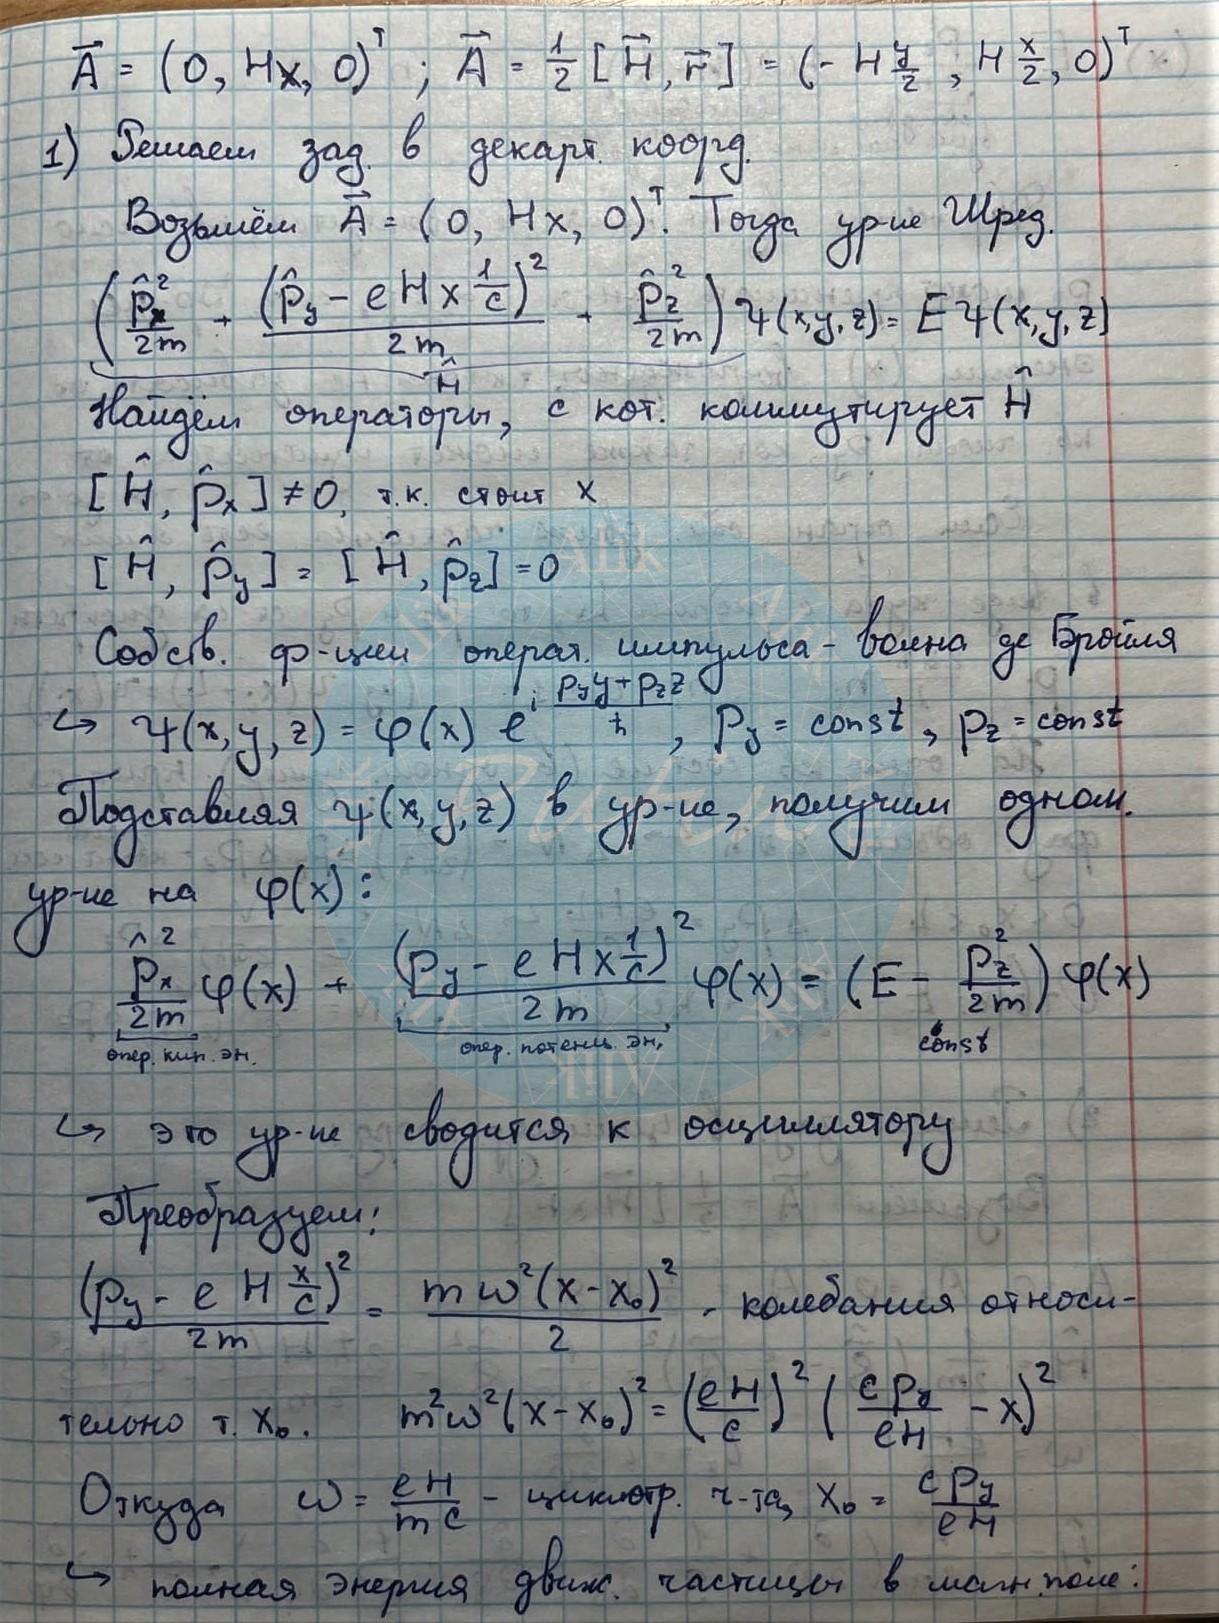 A⃗ = (0, Hx, 0)ᵀ ; A⃗ = 1/2 [H⃗, r⃗] = (- H y/2, H x/2, 0)ᵀ
1) Решаем зад. в декарт. коорд.
Возьмём A⃗ = (0, Hx, 0)ᵀ. Тогда ур-ие Шред.
(p̂ₓ²/2m + (p̂_y - eHx 1/c)²/2m + p̂_z²/2m) Ψ(x,y,z) = EΨ(x,y,z)
Ĥ
Найдём операторы, с кот. коммутирует Ĥ
[Ĥ, p̂ₓ] ≠ 0, т.к. стоит x
[Ĥ, p̂_y] = [Ĥ, p̂_z] = 0
Собств. ф-ции операт. импульса - волна де Бройля
↪ Ψ(x,y,z) = φ(x) e^{i (p_y y + p_z z)/ħ}, p_y = const, p_z = const
Подставляя Ψ(x,y,z) в ур-ие, получим одном.
ур-ие на φ(x):
p̂ₓ²/2m φ(x) + (p_y - eHx 1/c)²/2m φ(x) = (E - p_z²/2m) φ(x)
опер. кин. эн. опер. потенц. эн. const
↪ это ур-ие сводится к осциллятору
Преобразуем:
(p_y - eH x/c)²/2m = mω²(x-x₀)²/2 - колебания относи-
тельно т. x₀. m²ω²(x-x₀)² = (eH/c)² (cp_y/eH - x)²
Откуда ω = eH/mc - циклотр. ч-та, x₀ = cp_y/eH
↪ полная энергия движ. частицы в магн. поле:
Alik
Alik
Alik
Alik